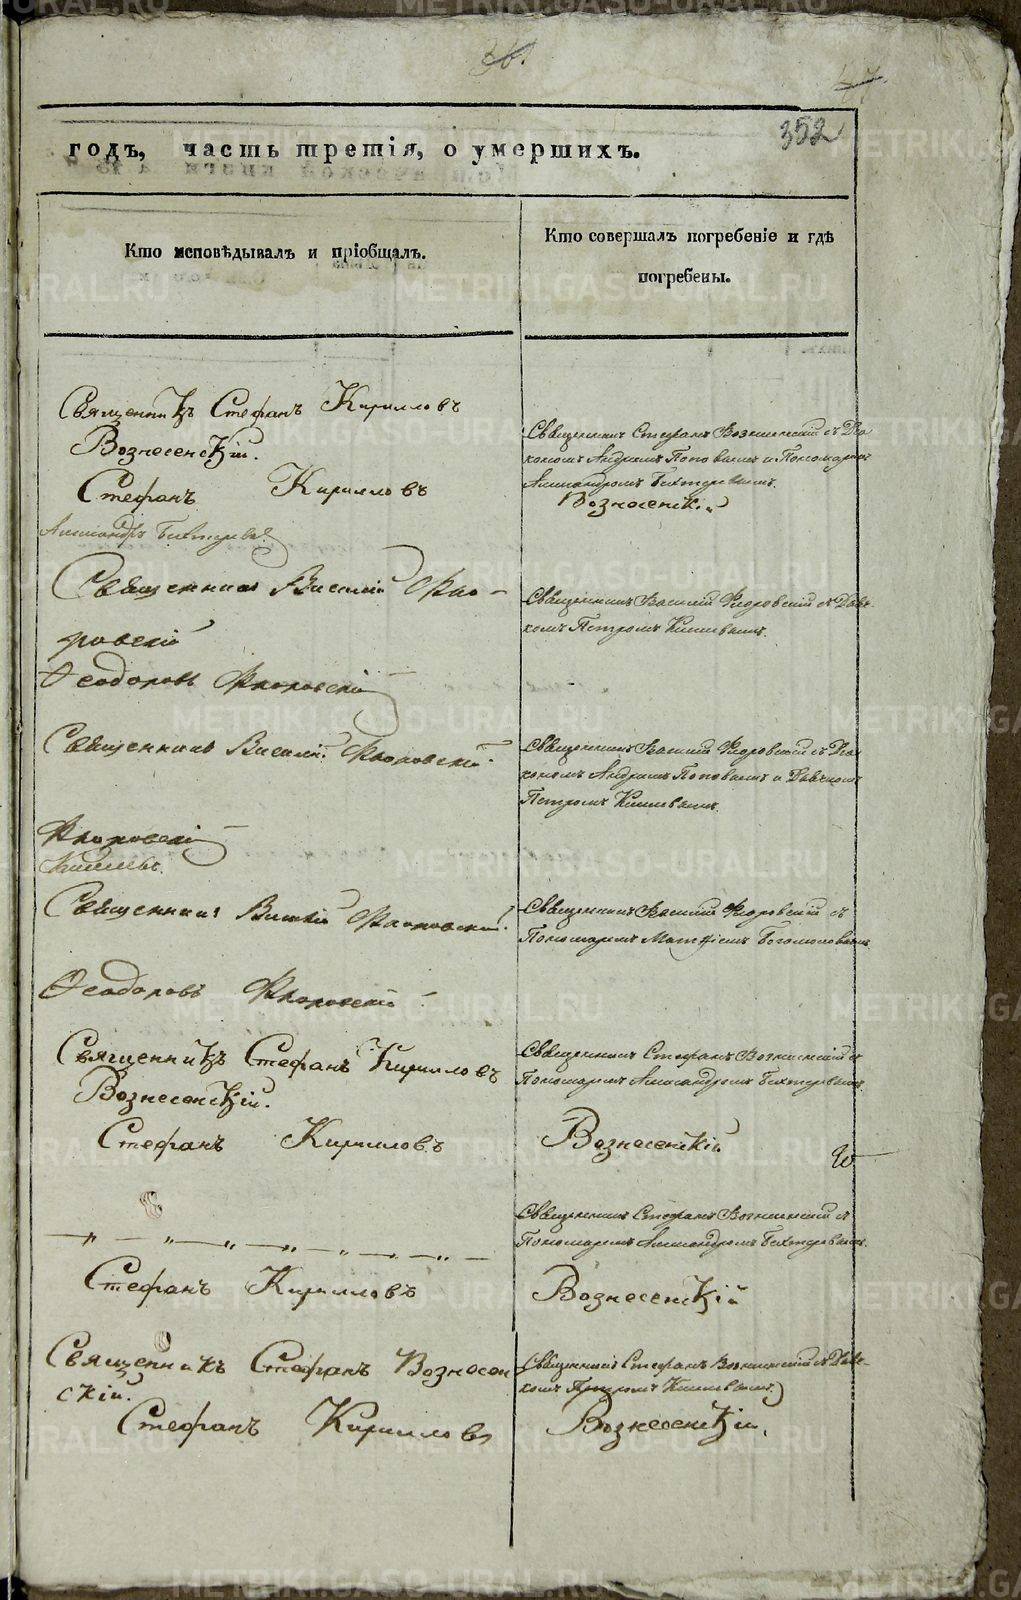 36.
352
годъ, часть третія, о умершихъ.
Кто исповѣдывалъ и пріобщалъ.
Кто совершалъ погребеніе и гдѣ
погребены.
Священникъ Стефанъ Кирилловъ
Вознесенскій.
Стефанъ Кирилловъ
Священникъ Стефанъ Вознесенскій съ Діа
кономъ Андреемъ Поповымъ и Пономаремъ
Александромъ
Вознесенскій
Александръ
Священникъ Василій Фло-
ровскій
Феодоровъ Флоровскій
Священникъ Василій Флоровскій съ Дьяч-
комъ Петромъ
Священникъ Василій Флоровскій
Флоровскій
Священникъ Василій Флоровскій съ Діа
кономъ Андреемъ Поповымъ и Дьячкомъ
Петромъ
Священникъ Василій Флоровскій
Феодоровъ Флоровскій
Священникъ Василій Флоровскій съ
Пономаремъ
Священникъ Стефанъ Кирилловъ
Вознесенскій.
Стефанъ Кирилловъ
Священникъ Стефанъ Вознесенскій съ
Пономаремъ Александромъ
Вознесенскій
Стефанъ Кирилловъ
Священникъ Стефанъ Вознесенскій съ
Пономаремъ Александромъ
Вознесенскій
Священникъ Стефанъ Вознесен
скій.
Стефанъ Кирилловъ
Священникъ Стефанъ Вознесенскій съ Дьяч-
комъ Петромъ
Вознесенскій.
METRIKI.GASO-URAL.RU